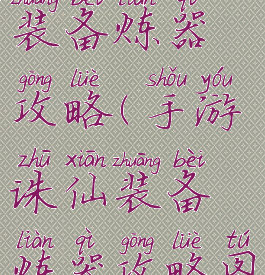 zhuāng bèi liàn qì
装备炼器
gōng lüè shǒu yóu
攻略(手游
zhū xiān zhuāng bèi
诛仙装备
liàn qì gōng lüè tú
炼器攻略图